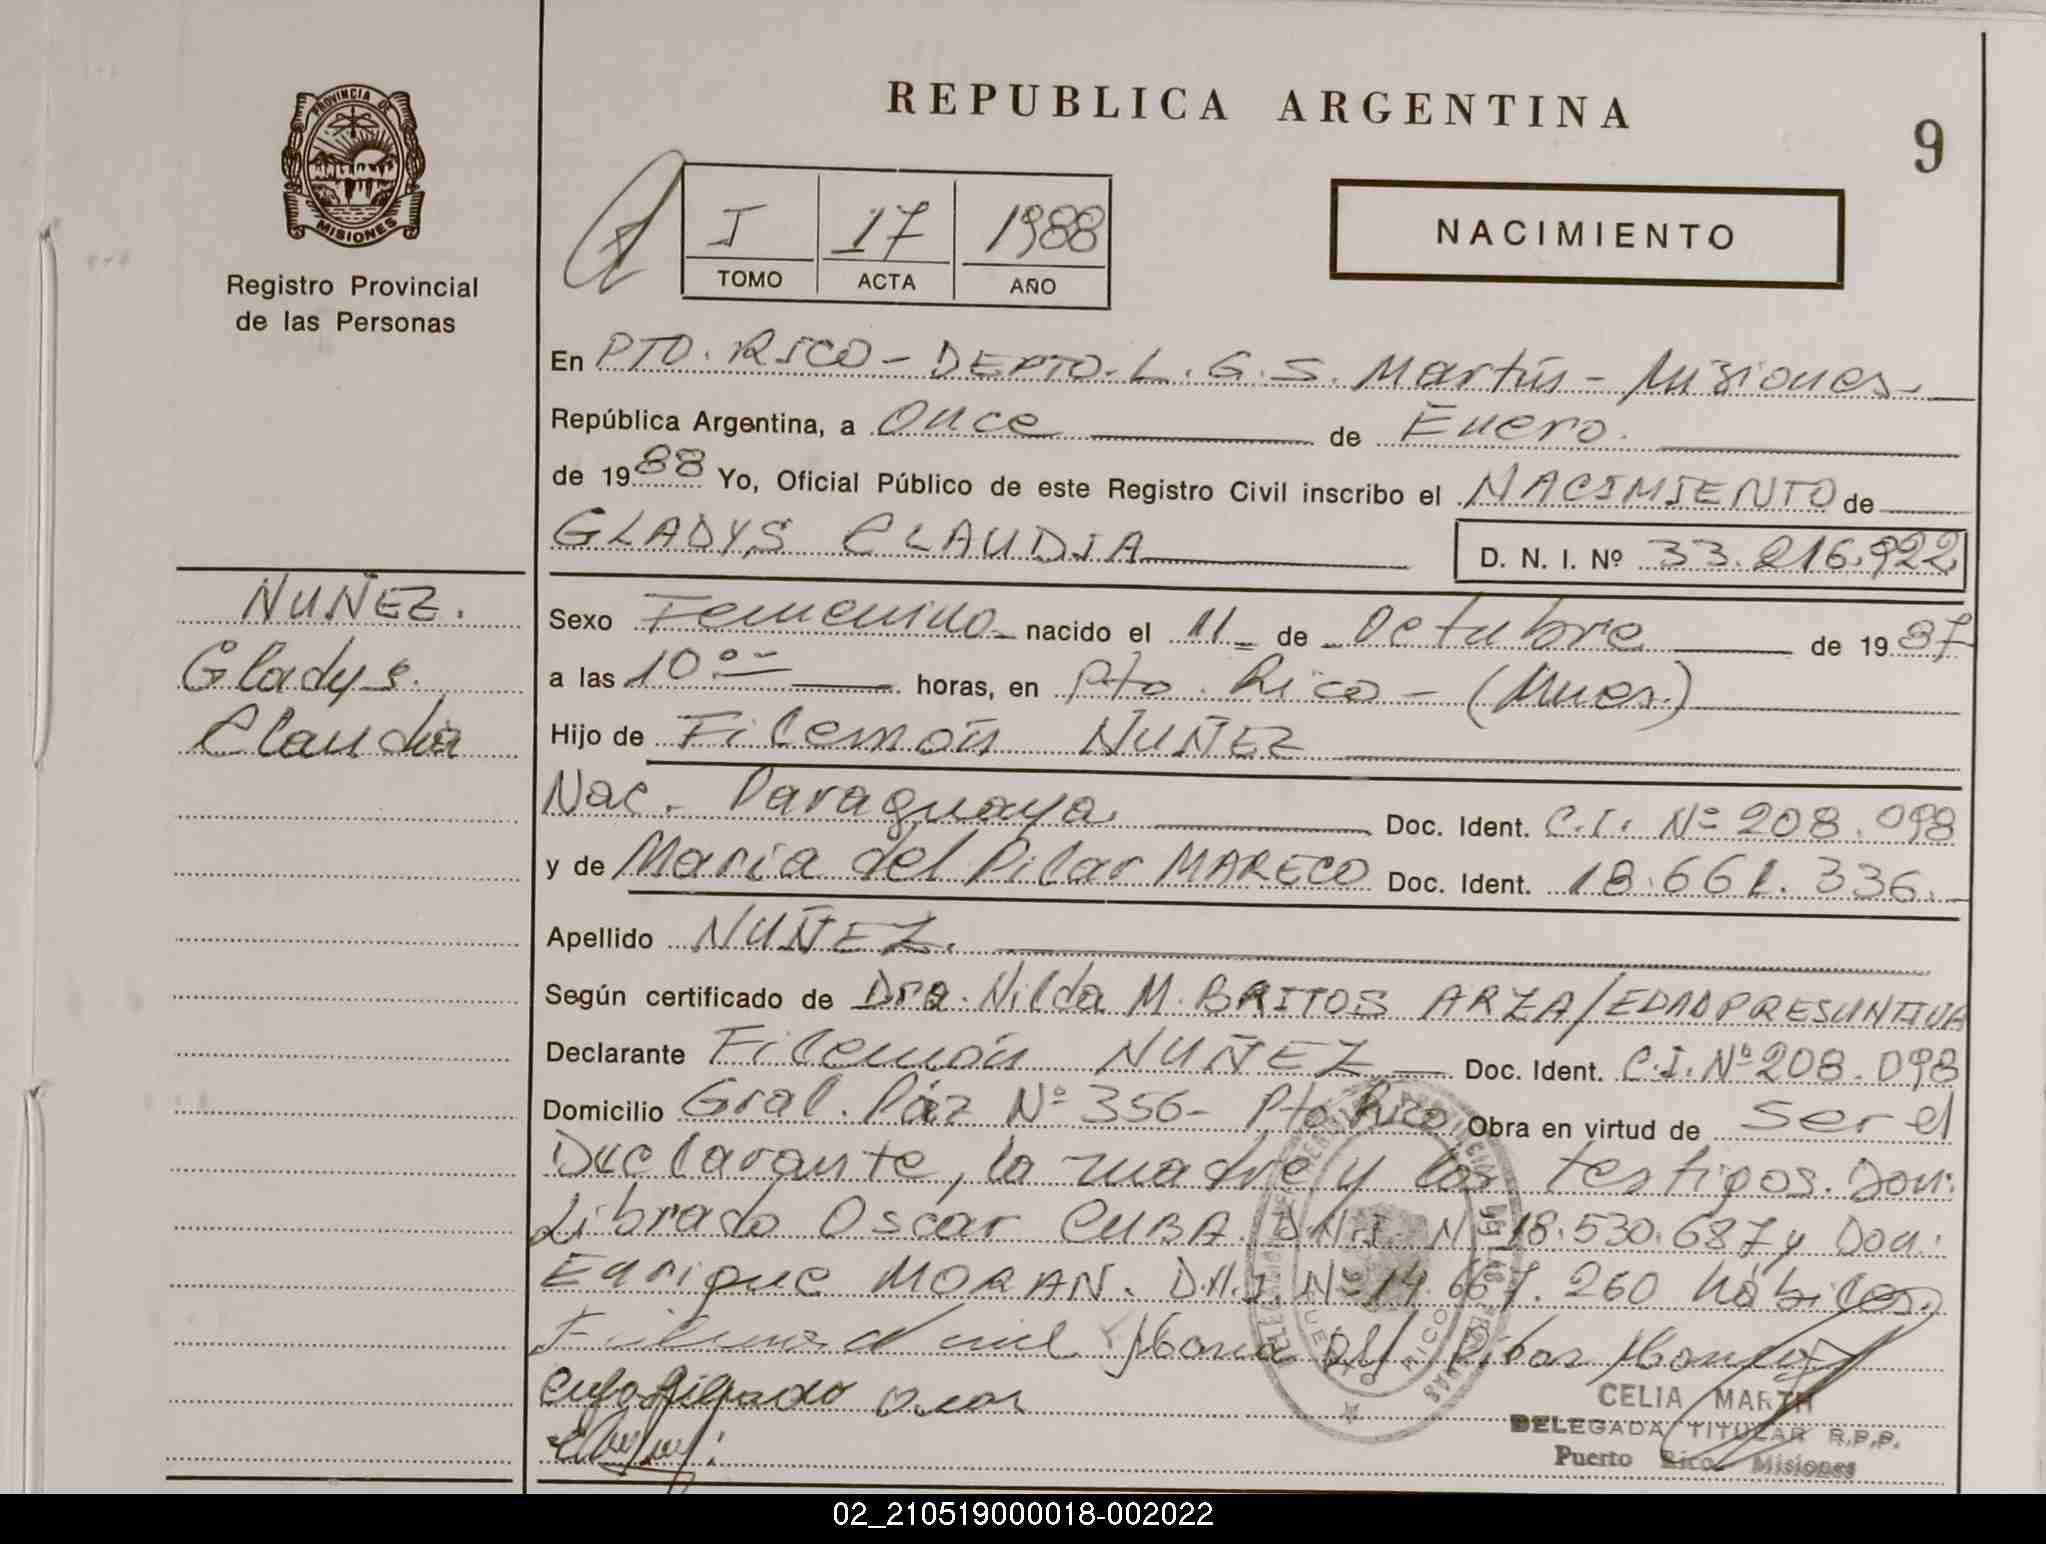 PROVINCIA DE
MISIONES
Registro Provincial
de las Personas
REPUBLICA ARGENTINA
9
I 17 1988
TOMO ACTA AÑO
NACIMIENTO
En PTO. RICO - DEPTO. L. G. S. Martín - Misiones -
República Argentina, a Once de Enero.
de 1988 Yo, Oficial Público de este Registro Civil inscribo el NACIMIENTO de
GLADYS CLAUDIA
D. N. I. Nº 33.216.922
NUÑEZ.
Gladys
Claudia
Sexo Femenino - nacido el 11 de Octubre de 1987
a las 10:00 horas, en Pto. Rico - (Mnes.)
Hijo de Filemón NUÑEZ
Nac. Paraguaya. Doc. Ident. C.I. Nº 208.098
y de Maria del Pilar MARECO Doc. Ident. 18.661.336.
Apellido NUÑEZ.
Según certificado de Dra. Nilda M. BRITOS ARZA/EDAD PRESUNTIVA
Declarante Filemón NUÑEZ Doc. Ident. C.I. Nº 208.098
Domicilio Gral. Páz Nº 356 - Pto. Rico Obra en virtud de Ser el
Declarante, la madre y los testigos. Don:
Librado Oscar CUBA D.N.I. Nº 18.530.687 y Don:
Enrique MORAN. D.N.I. Nº 14.667.260 hábiles.
Maria Del Pilar
Oscar
CELIA MARTH
DELEGADA TITULAR R.P.P.
Puerto Rico Misiones
02_210519000018-002022